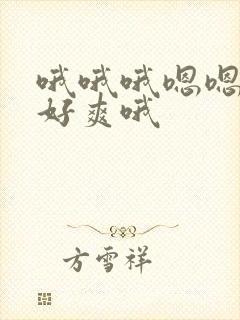 哦哦哦嗯嗯
好爽哦
方雪祥